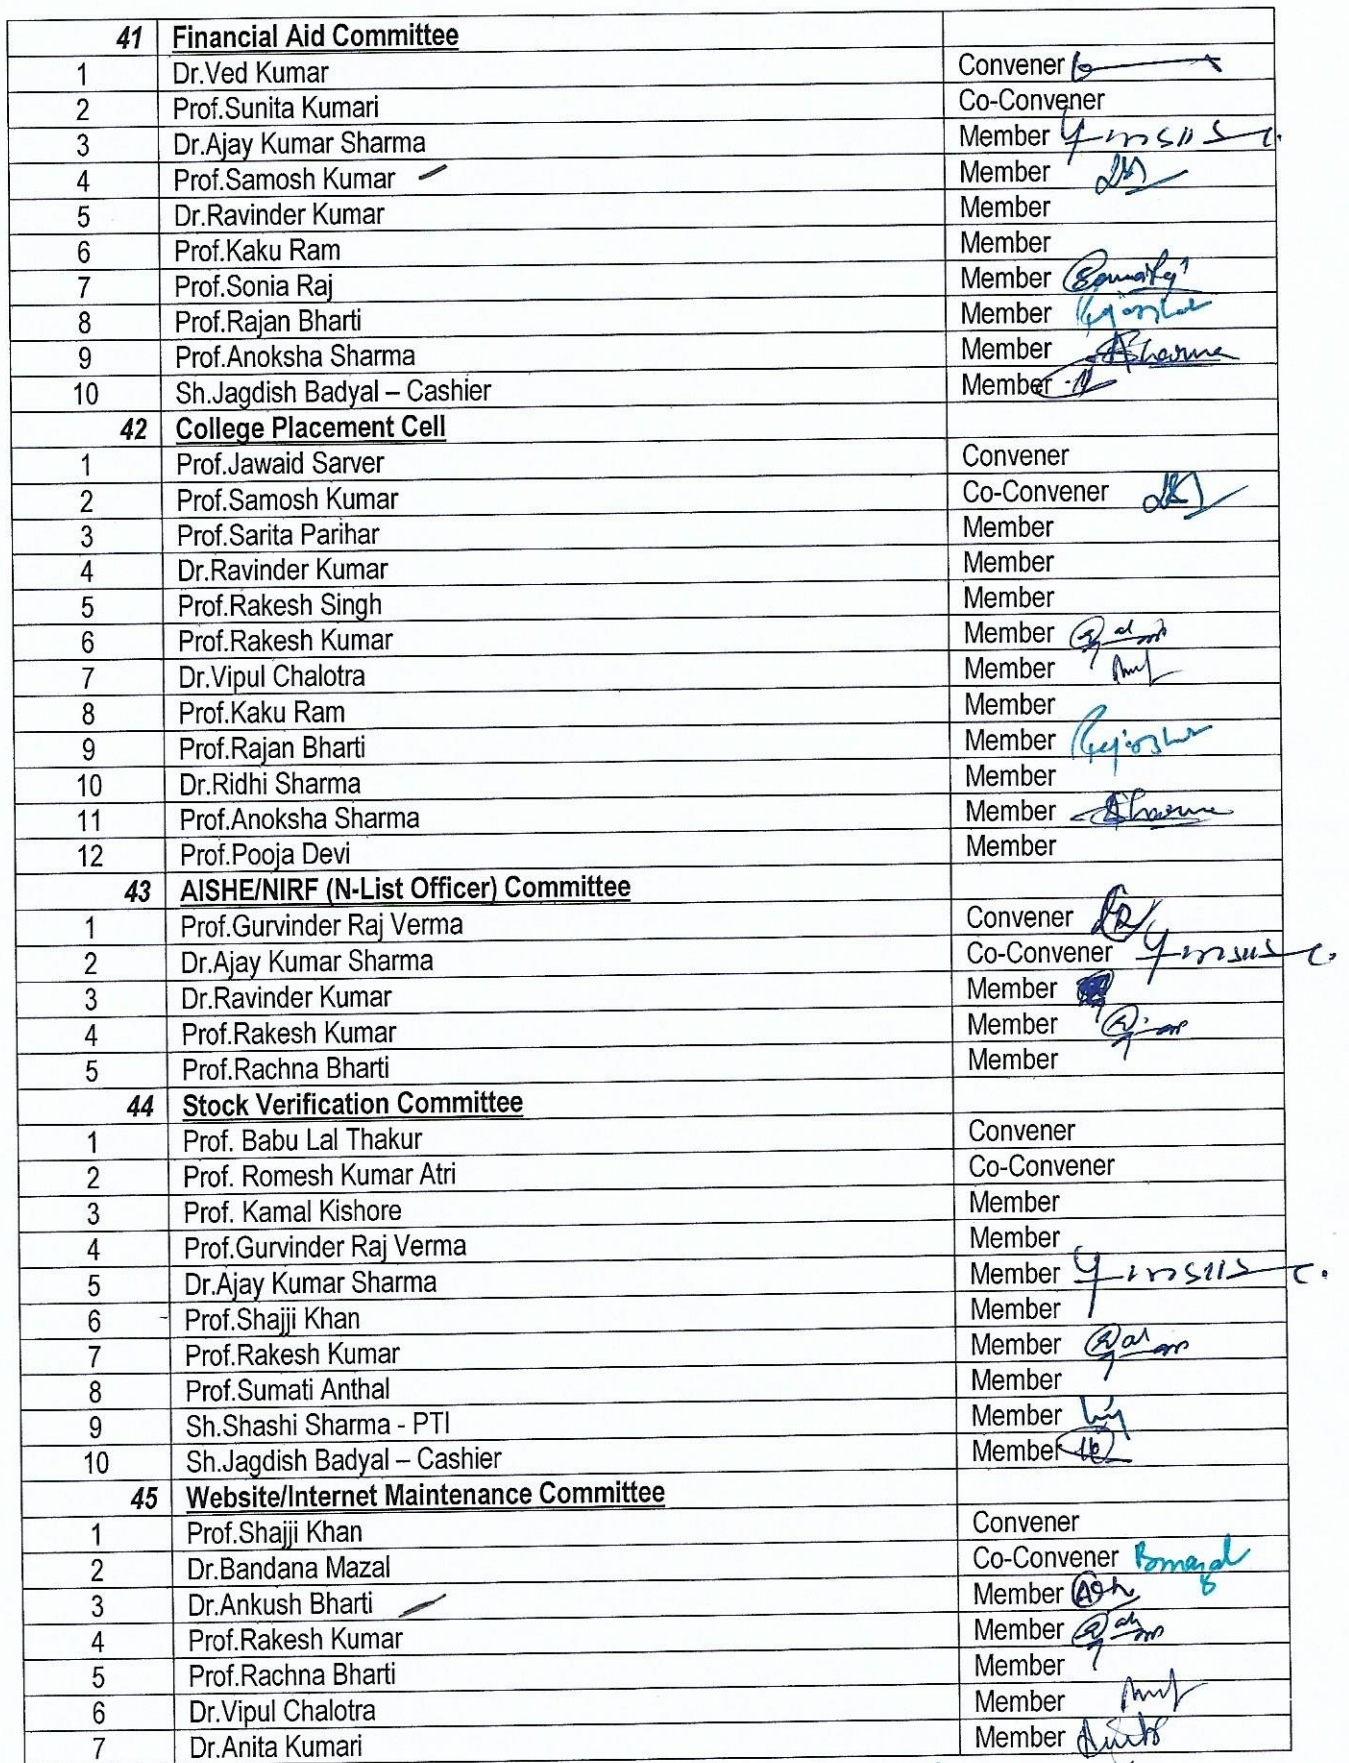 41 Financial Aid Committee
1 Dr.Ved Kumar Convener
2 Prof.Sunita Kumari Co-Convener
3 Dr.Ajay Kumar Sharma Member
4 Prof.Samosh Kumar Member
5 Dr.Ravinder Kumar Member
6 Prof.Kaku Ram Member
7 Prof.Sonia Raj Member
8 Prof.Rajan Bharti Member
9 Prof.Anoksha Sharma Member
10 Sh.Jagdish Badyal – Cashier Member
42 College Placement Cell
1 Prof.Jawaid Sarver Convener
2 Prof.Samosh Kumar Co-Convener
3 Prof.Sarita Parihar Member
4 Dr.Ravinder Kumar Member
5 Prof.Rakesh Singh Member
6 Prof.Rakesh Kumar Member
7 Dr.Vipul Chalotra Member
8 Prof.Kaku Ram Member
9 Prof.Rajan Bharti Member
10 Dr.Ridhi Sharma Member
11 Prof.Anoksha Sharma Member
12 Prof.Pooja Devi Member
43 AISHE/NIRF (N-List Officer) Committee
1 Prof.Gurvinder Raj Verma Convener
2 Dr.Ajay Kumar Sharma Co-Convener
3 Dr.Ravinder Kumar Member
4 Prof.Rakesh Kumar Member
5 Prof.Rachna Bharti Member
44 Stock Verification Committee
1 Prof. Babu Lal Thakur Convener
2 Prof. Romesh Kumar Atri Co-Convener
3 Prof. Kamal Kishore Member
4 Prof.Gurvinder Raj Verma Member
5 Dr.Ajay Kumar Sharma Member
6 Prof.Shajji Khan Member
7 Prof.Rakesh Kumar Member
8 Prof.Sumati Anthal Member
9 Sh.Shashi Sharma - PTI Member
10 Sh.Jagdish Badyal – Cashier Member
45 Website/Internet Maintenance Committee
1 Prof.Shajji Khan Convener
2 Dr.Bandana Mazal Co-Convener
3 Dr.Ankush Bharti Member
4 Prof.Rakesh Kumar Member
5 Prof.Rachna Bharti Member
6 Dr.Vipul Chalotra Member
7 Dr.Anita Kumari Member